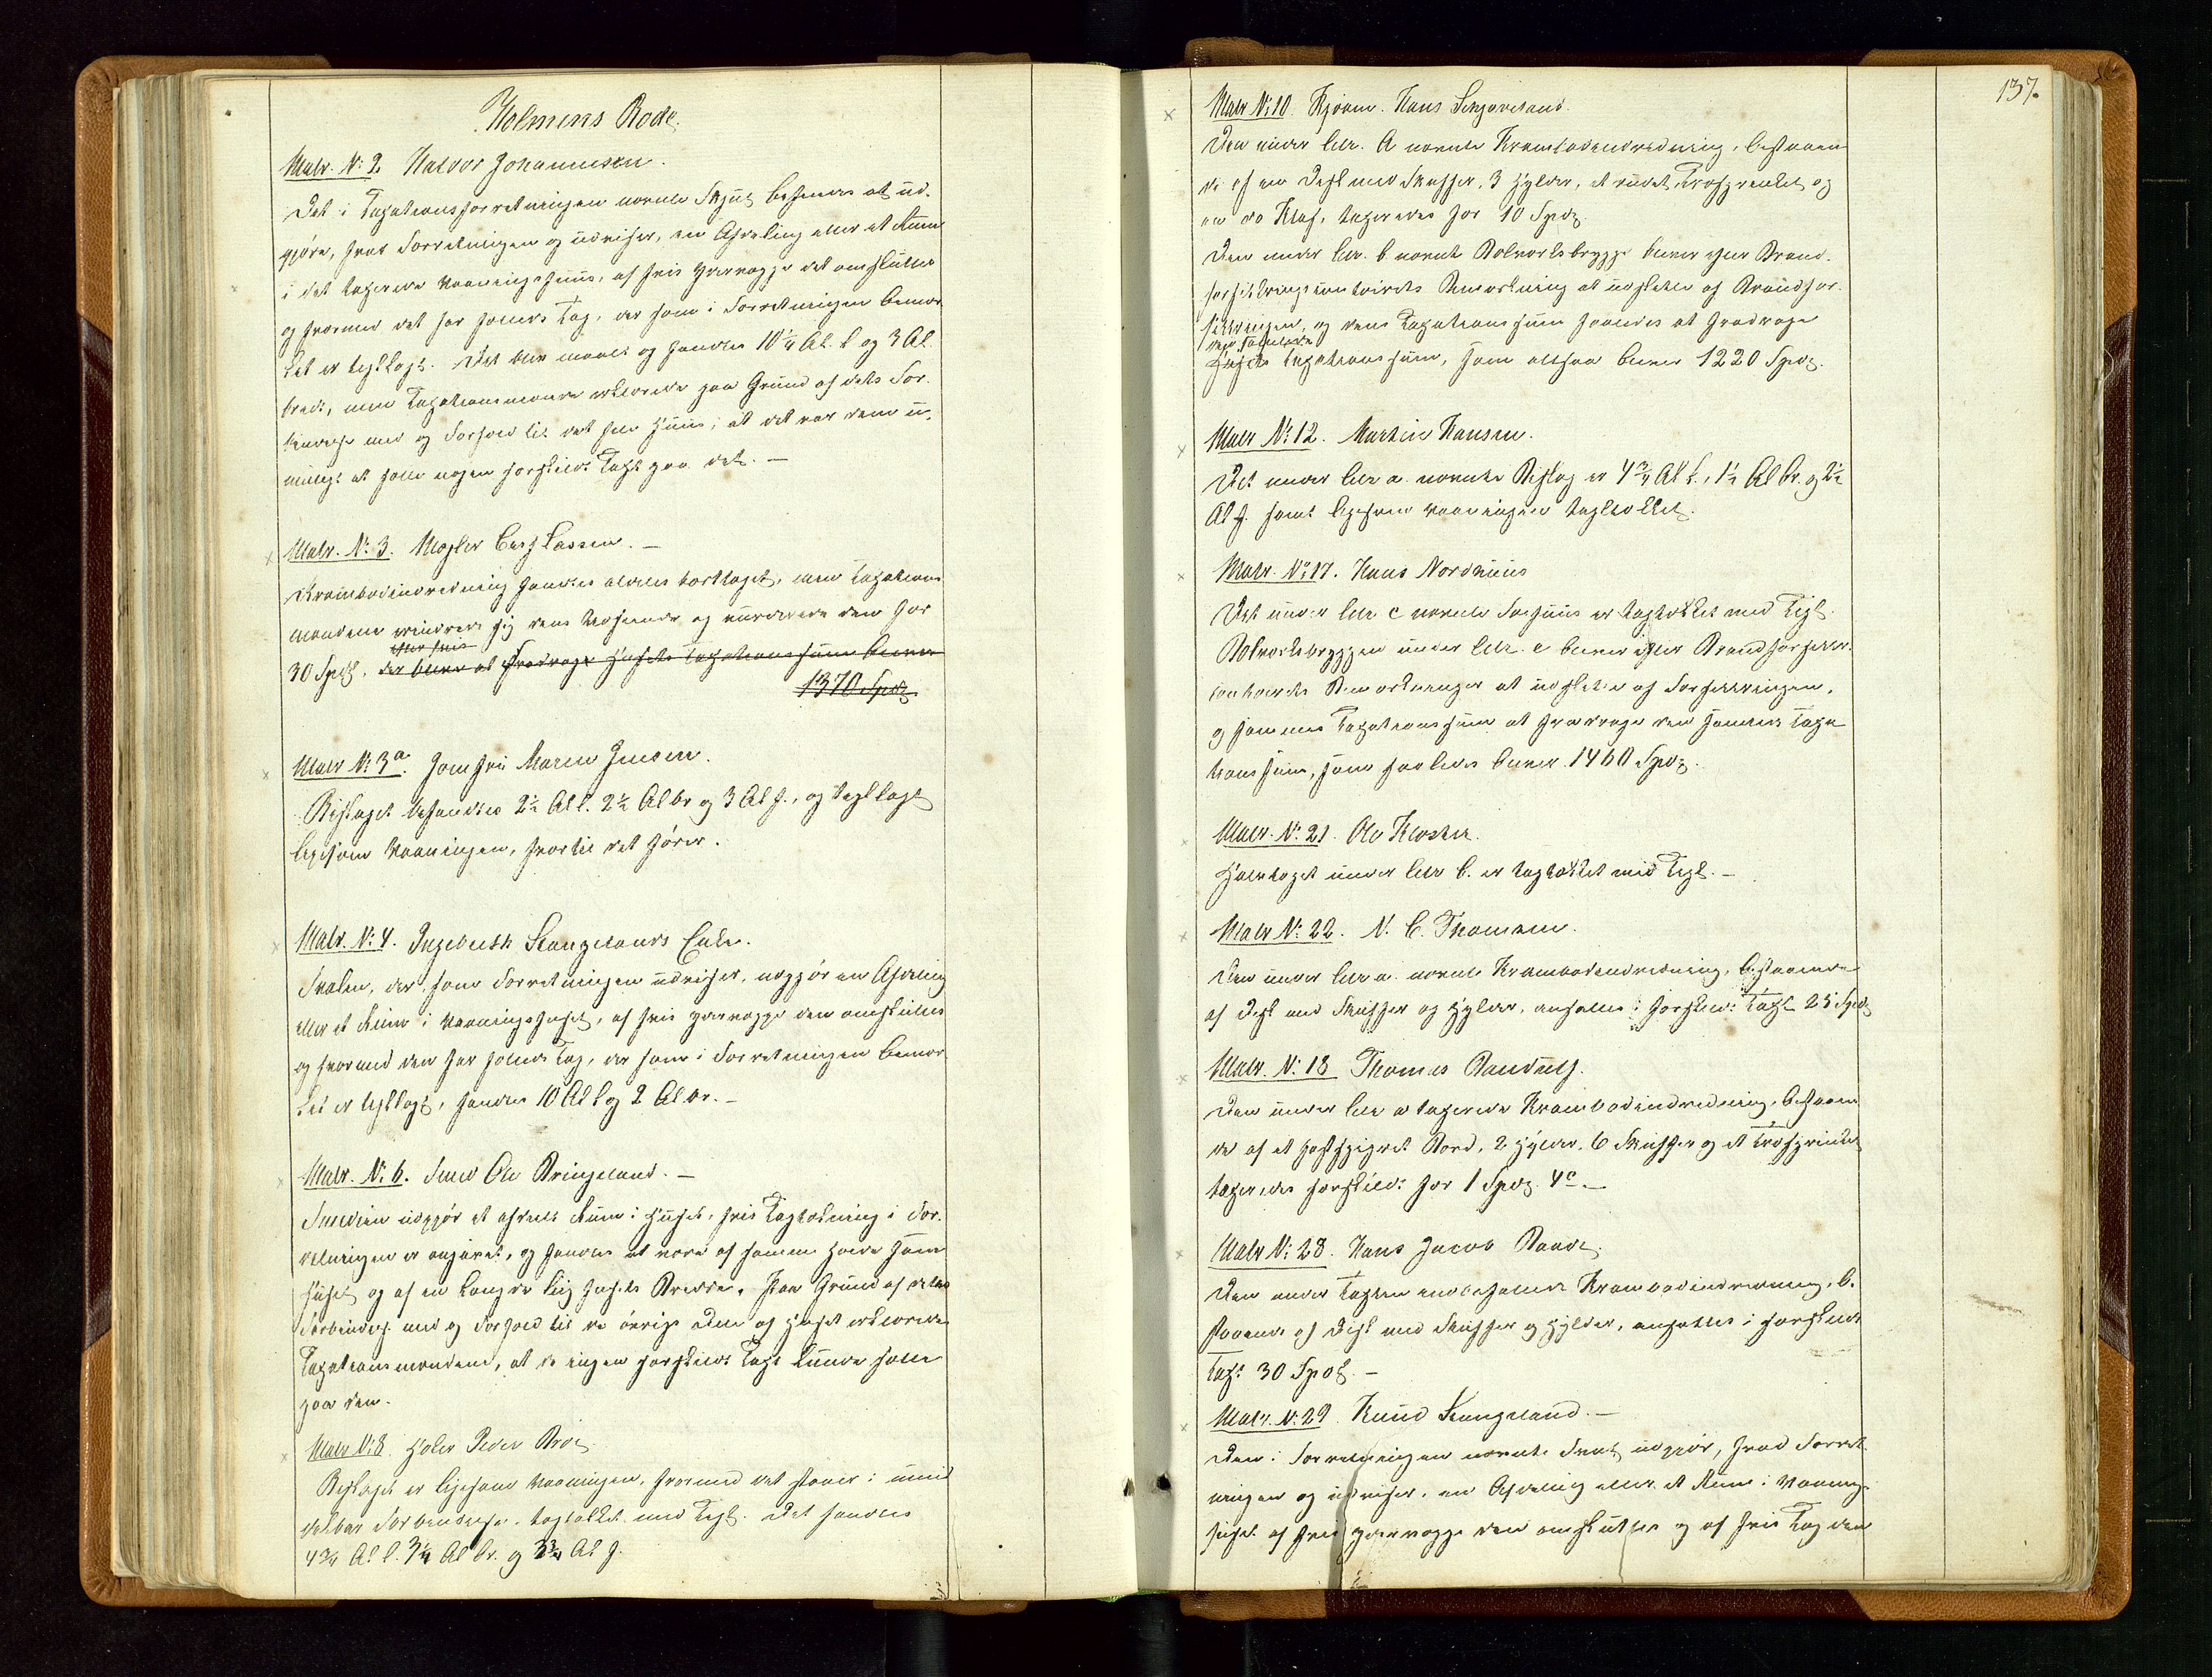 Holmens Rode.
Matr. No: 2 Halvor Johannesen.
Det i Taxationsforretningen nævnte Skjul befandtes at ud-
gjøre, hvad Forretningen og udviser, en Afdeling eller et Rum
i det taxerede Vaaningshuus, af hvis Ydervægge det omsluttes
og hvormed det har fælleds Tag, der som i Forretningen bemær-
ket er tegllagt. Det blev maalt og fandtes 10 1/4 Al. l og 3 Al
bredt, men Taxationsmændene erklærede paa Grund af dets For-
bindelse med og Forhold til det hele Huus, at det var dem u-
muligt at sætte nogen særskilt Taxt paa det. —
Matr. No: 3. Mægler Carl Lassen. —
Krambodindredning fandtes aldeles borttaget, men Taxations
mændene erindrede sig dens Udseende og vurderede den for
efter hvis
30 Spd, der bliver at fradrage Husets Taxationssum bliver
1370 Spd.
Matr No: 3a. Jomfru Maren Jensen.
Bislaget befandtes 2 1/2 Al l. 2 1/2 Al br og 3 Al h., og tegllagt
ligesom Vaaningen, hvortil det hører.
Matr. No: 4. Ingebreth Stangelands Enke.
Svalen, der, som Forretningen udviser, udgjør en Afdeling
eller et Rum i Vaaningshuset, af hvis Ydervægge den omsluttes
og hvormed den har fælleds Tag, der som i Forretningen bemær
ket er tegllagt, fandtes 10 Al l og 2 Al br. —
Matr. No: 6. Smed Ole Bringeland. —
Smedien udgjør et afdeelt Rum i Huset, hvis Tagtækning i For-
retningen er angivet, og fandtes at være af samme Høide som
Huset og af en Længde lig Husets Bredde. Paa Grund af dettes
Forbindelse med og Forhold til de øvrige Dele af Huset erklærede
Taxationsmændene, at de ingen særskilt Taxt kunde sætte
paa den.
Matr No: 8. Høker Peder Broe.
Bislaget er ligesom Vaaningen, hvormed det staaer i umid
delbar Forbindelse, tagtækket med Tegl. Det fandtes
4 3/4 Al l. 3 1/4 Al br. og 3 3/4 Al h.
137.
Matr No: 10. Kjøbm. Hans Skjæveland.
Den under litr. A nævnte Krambodindredning, bestaaen
de af en Disk med Skuffer, 3 Hylder, et rundt Træsprinkel og
en do Klaf, taxeredes for 10 Spd.
Den under litr. b nævnte Bolværksbrygge bliver efter Brand-
forsikringscontoirets Bemærkning at udslette af Brandfor-
sikringen, og dens Taxationssum saaledes at fradrage
Husets Taxationssum, som altsaa bliver 1220 Spd.
Matr No: 12. Martin Hansen.
Det under litr a. nævnte Bislag er 4 3/4 Al l., 1 1/2 Al br. og 2 1/2
Al h. samt ligesom Vaaningen tagtækket.
Matr. No: 17. Hans Nordhuus
Det under litr c nævnte Søehuus er tagtækket med Tegl.
Bolværksbryggen under litr. e bliver efter Brandforsikr.
contoirets Bemærkninger at udslette af Forsikringen,
og sammes Taxationssum at fradrage den samlede Taxa
tionssum, som saaledes bliver 1460 Spd.
Matr. No: 21. Ole Kloster.
Halvtaget under litr b. er tagtækket med Tegl. —
Matr No: 22. N. C. Thomsen.
Den under litr a. nævnte Krambodindredning, bestaaende
af Disk med Skuffer og Hylder, ansattes i særskilt Taxt 25 Spd
Matr. No: 18 Thomas Randulf.
Den under litr a taxerede Krambodindredning, bestaaen
de af et fastspigret Bord, 2 Hylder, 6 Skuffer og et Træsprinkel
taxeredes særskilt for 1 Spd. 4 c. —
Matr No: 28. Hans Jacob Raade.
Den under Taxten indbefattede Krambodindredning, be-
staaende af Disk med Skuffer og Hylder, ansattes i særskilt
Taxt 30 Spd. —
Matr. No: 29. Knud Stangeland. —
Den i Forretningen nævnte Sval udgjør, hvad Forret-
ningen og udviser, en Afdeling eller et Rum i Vaanings-
huset af hvis Ydervægge den omsluttes og af hvis Tag den